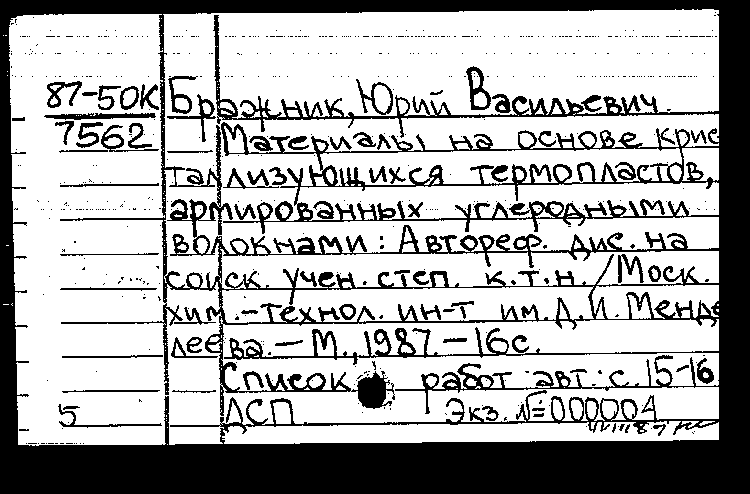 87-50К Бражник, Юрий Васильевич.
7562 Материалы на основе крис
таллизующихся термопластов,
армированных углеродными
волокнами: Автореф. дис. на
соиск. учен. степ. к.т.н. / Моск.
хим.-технол. ин-т им. Д.И. Менде
леева. — М., 1987. — 16с.
Список работ авт.: с. 15-16
5 ДСП Экз. №=000004